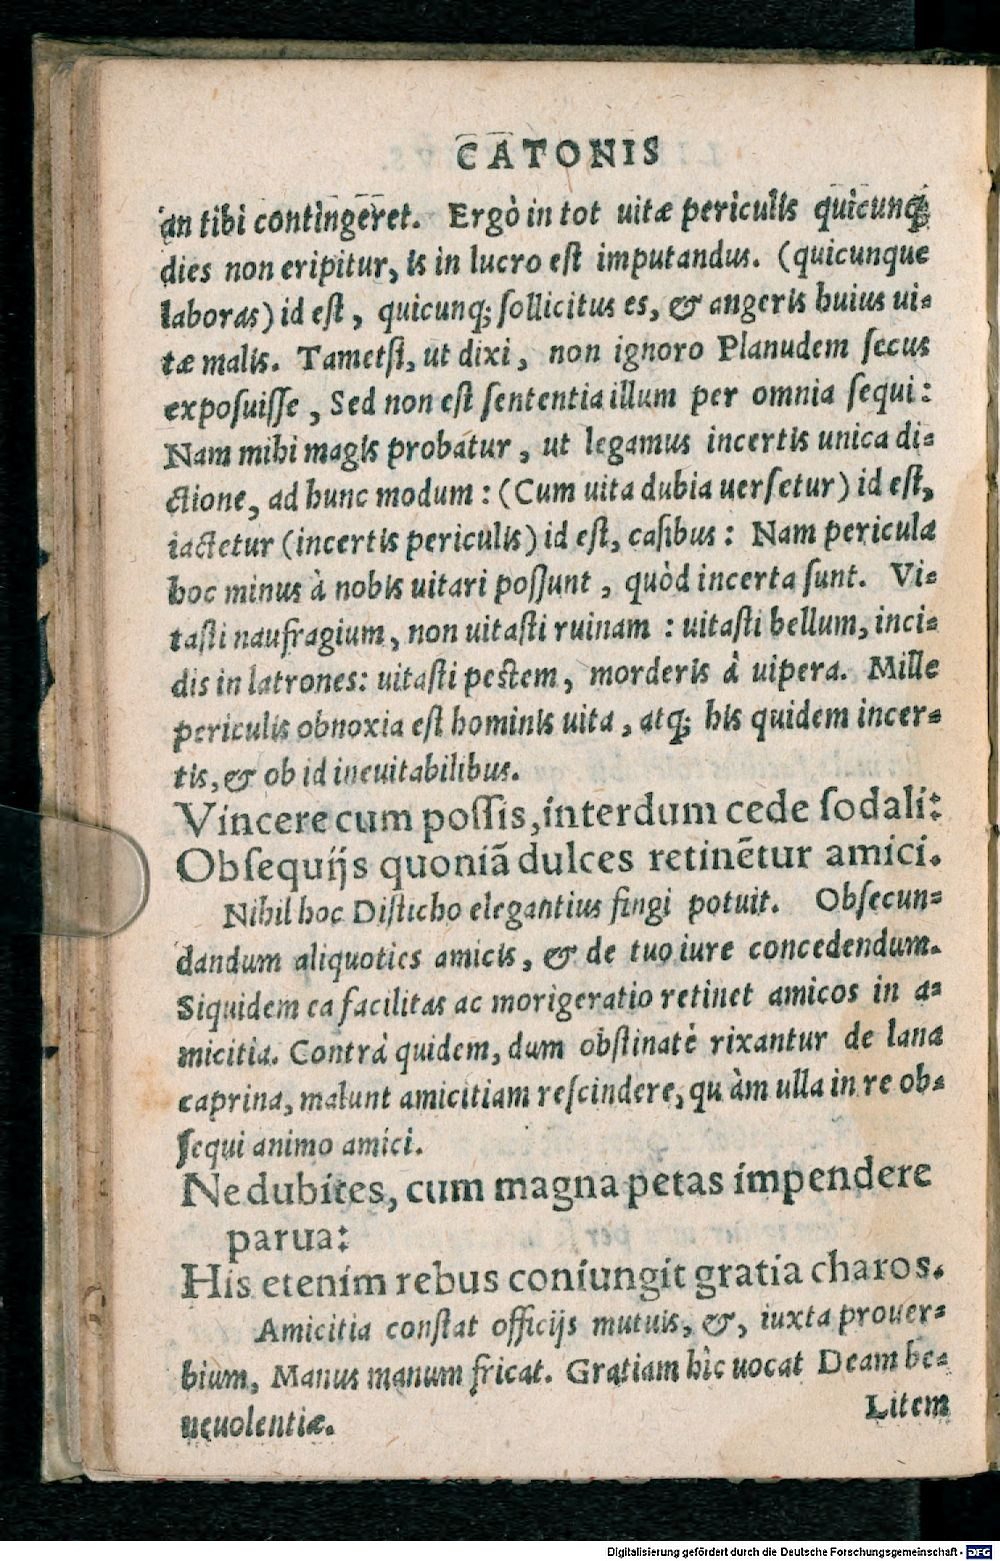 CATONIS
an tibi contingeret. Ergò in tot uitæ periculis quicunq;
dies non eripitur, is in lucro est imputandus. (quicunque
laboras) id est, quicunq; sollicitus es, & angeris huius ui=
tæ malis. Tametsi, ut dixi, non ignoro Planudem secus
exposuisse, Sed non est sententia illum per omnia sequi:
Nam mihi magis probatur, ut legamus incertis unica di=
ctione, ad hunc modum: (Cum uita dubia uersetur) id est,
iactetur (incertis periculis) id est, casibus: Nam pericula
hoc minus à nobis uitari possunt, quòd incerta sunt. Vi=
tasti naufragium, non uitasti ruinam: uitasti bellum, inci=
dis in latrones: uitasti pestem, morderis à uipera. Mille
periculis obnoxia est hominis uita, atq; his quidem incer=
tis, & ob id ineuitabilibus.
Vincere cum possis, interdum cede sodali:
Obsequijs quoniã dulces retinẽtur amici.
Nihil hoc Disticho elegantius fingi potuit. Obsecun=
dandum aliquoties amicis, & de tuo iure concedendum.
Siquidem ea facilitas ac morigeratio retinet amicos in a=
micitia. Contrà quidem, dum obstinatè rixantur de lana
caprina, malunt amicitiam rescindere, quàm ulla in re ob=
sequi animo amici.
Ne dubites, cum magna petas impendere
parua:
His etenim rebus coniungit gratia charos.
Amicitia constat officijs mutuis, &, iuxta prouer=
bium, Manus manum fricat. Gratiam hîc uocat Deam be=
neuolentiæ.
Litem
Digitalisierung gefördert durch die Deutsche Forschungsgemeinschaft - DFG